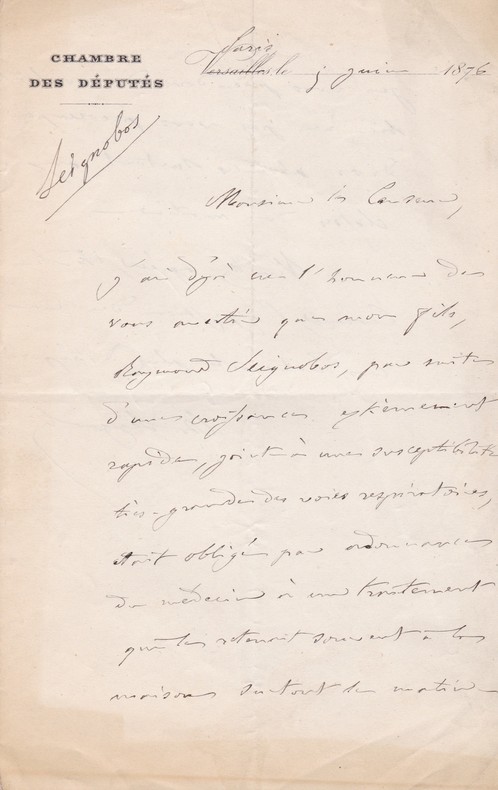 CHAMBRE
DES DÉPUTÉS
Paris
Versailles le 5 juin 1876
Seignobos
Monsieur le Censeur,
J'ai déjà eu l'honneur de
vous que mon fils,
Raymond Seignobos, par suite
d'une croissance extrêmement
rapide, joint à une susceptibilité
très-grande des voies respiratoires,
était obligé par ordonnance
du médecin à un traitement
qui le retenait souvent à la
maison surtout le matin